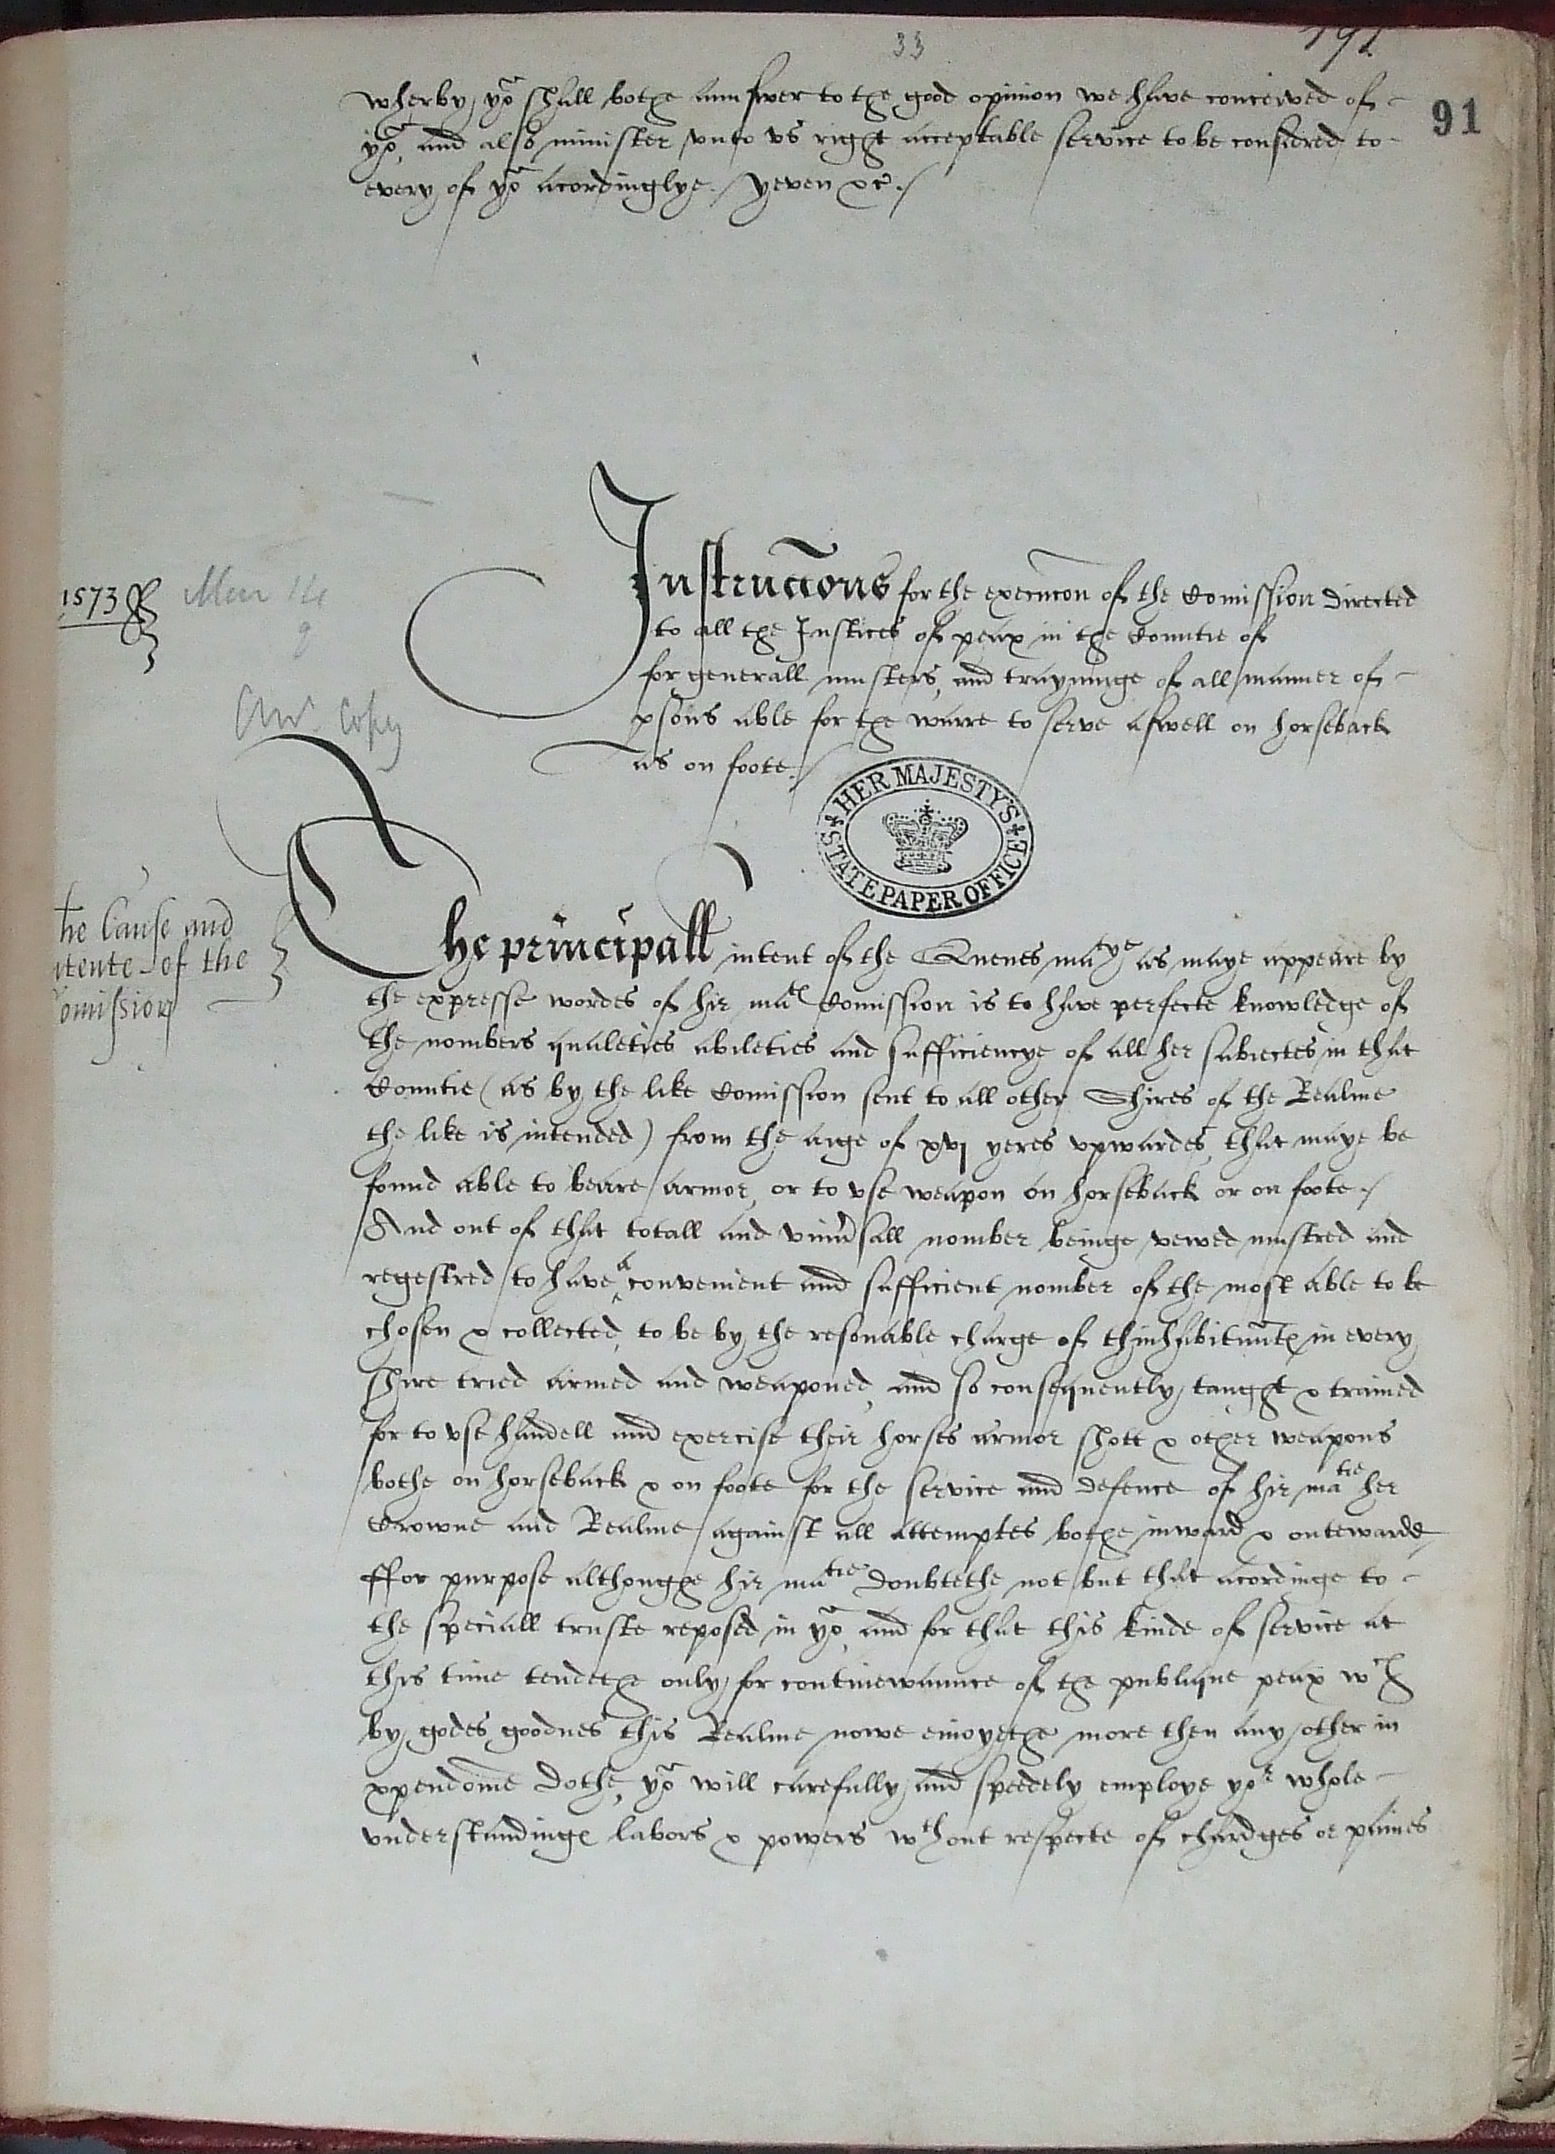 33
191
91
wherby yo͞ shall bothe aunswer to the good opinion we have conceived of
yo͞, and also minister unto us right acceptable service to be consid̃ered to
every of yo͞ acordinglye. / yeven &c. /
Instruc̃ons for the execuc̃on of the Com̃ission directed
to all the Justices of peax in the Countie of
for generall musters, and traynynge of all manner of
p̱sons able for the warre to serve aswell on horseback
as on foote. /
1573
Mar
Copy
HER MAJESTY'S STATE PAPER OFFICE
he Cause and
ntente of the
om̃ission
The principall intent of the Quenes matye as maye appeare by
the expresse wordes of hir mats Com̃ission is to have perfecte knowledge of
the nombers qualeties abileties and sufficiencye of all her subiectes in that
Countie (as by the like Com̃ission sent to all other Shires of the Realme
the like is intended) from the aige of xvj yeres upwardes, that maye be
found able to beare armor, or to use weapon on horseback or on foote. /
And out of that totall and univ̉sall nomber beinge vewed mustred and
regestred to have a convenient and sufficient nomber of the most able to be
chosen & collected, to be by the resonable charge of thinhabitãntes in every
Shire tried armed and weaponed, and so consequently taught & trained
for to use handell and exercise their horses armor shott & other weapons
bothe on horseback & on foote for the service and defence of hir matie her
Crowne and Realme against all attemptes bothe inward & outewarde
ffor purpose althoughe hir matie doubtethe not but that acordinge to
the speciall truste reposed in yo͞, and for that this kinde of service at
this time tendethe only for continewaunce of the publique peax wch
by godes goodnes this Realme nowe enioyethe more then any other in
xp̱endome dothe, yo͞ will carefully and speedely employe yor whole
understandinge labors & powers wthout respecte of chardges or paines